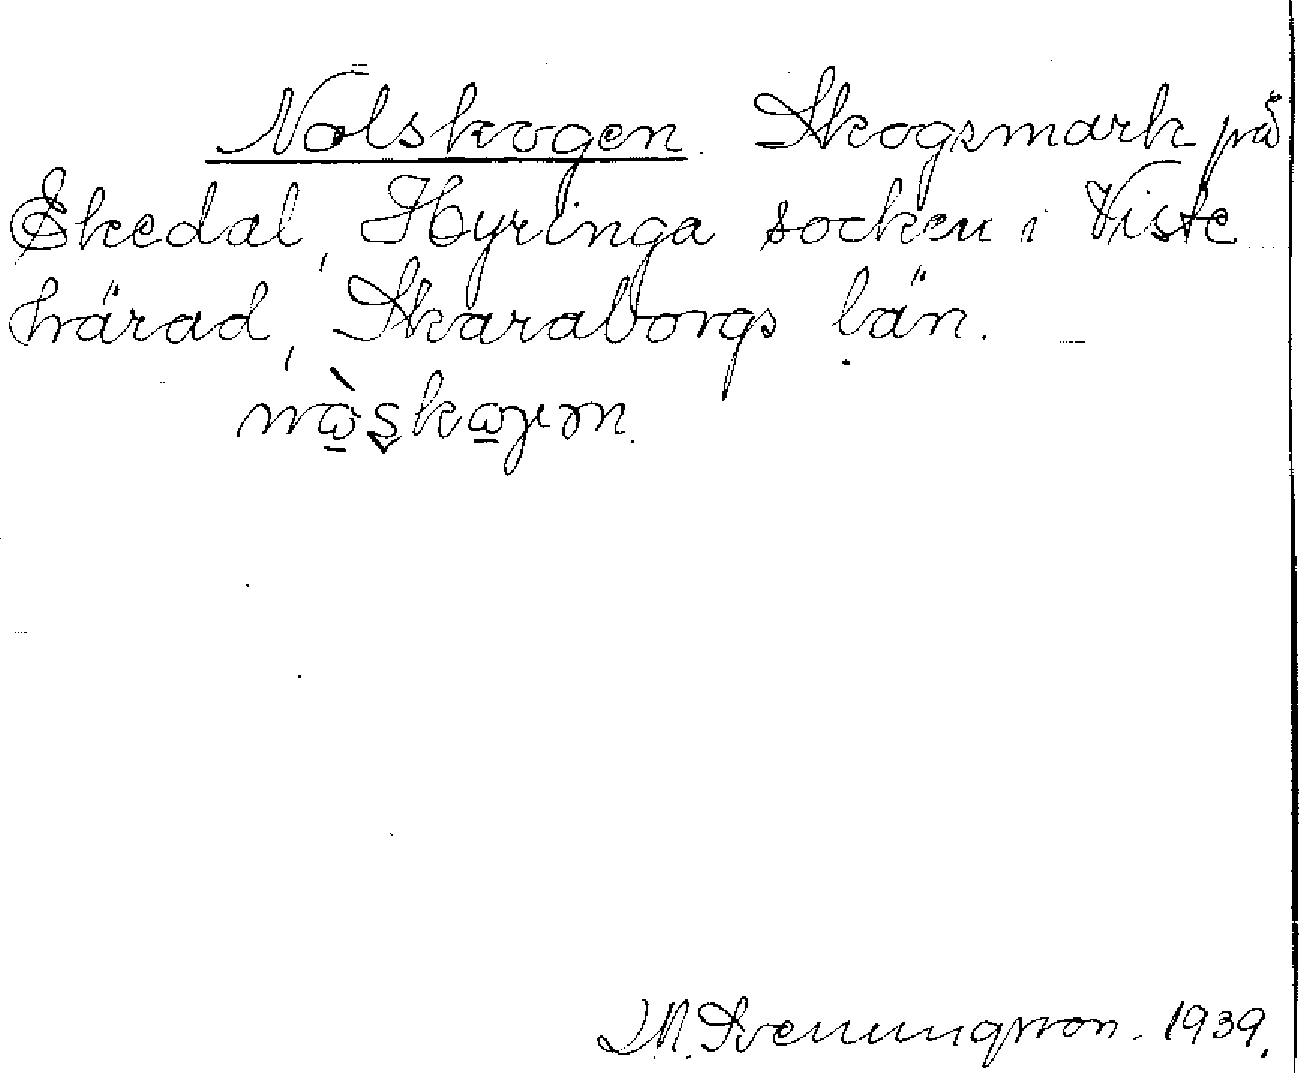 Nolskogen. Skogsmark på
Ekedal, Hyringa socken i Viste
härad, Skaraborgs län.
Svenungsson. 1939.